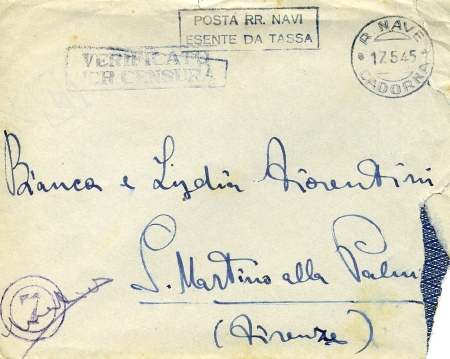 POSTA RR. NAVI
ESENTE DA TASSA
R. NAVE
17.5.45
CADORNA
VERIFICATO
PER CENSURA
Bianca e Lydia Fiorentini
S. Martino alla Palm
(Firenze)
7